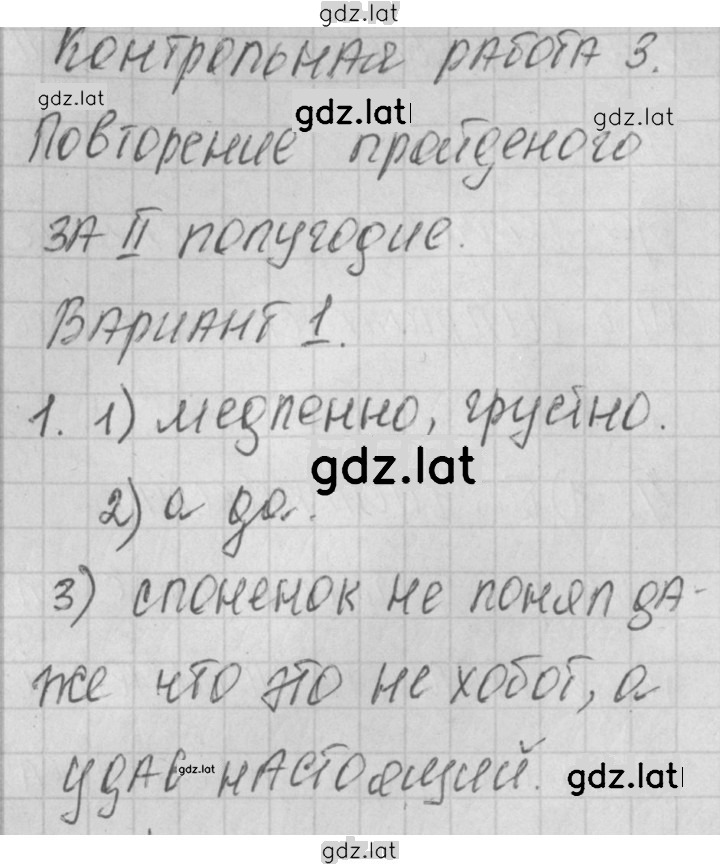 gdz.lat
Контрольная работа 3.
gdz.lat gdz.lat gdz.lat
Повторение пройденого
за II полугодие.
Вариант 1.
1. 1) медленно, грустно.
gdz.lat
2) а да.
3) слоненок не понял да-
же что это не хобот, а
удав gdz.lat настоящий. gdz.lat
gdz.lat